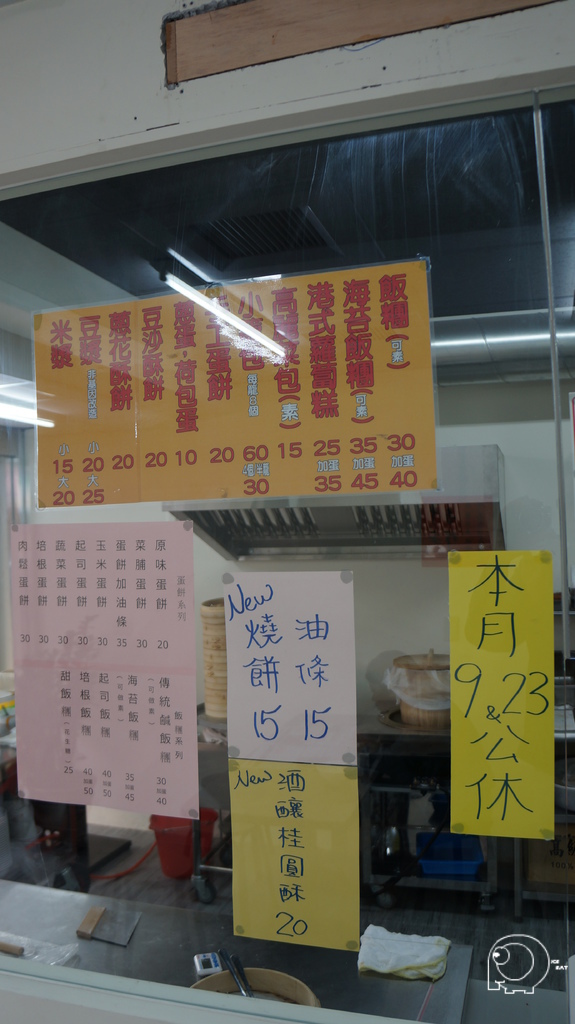 飯糰(可素) 30 加蛋 40
海苔飯糰(可素) 35 加蛋 45
港式蘿蔔糕 25 加蛋 35
高麗菜包(素) 15
小籠包 每籠8個 60 4個半籠 30
蛋餅 20
蔥蛋,荷包蛋 10
豆沙酥餅 20
蔥花酥餅 20
豆漿 非基因改造 小 20 大 25
米漿 小 15 大 20
蛋餅系列
原味蛋餅 20
菜脯蛋餅 30
蛋餅加油條 35
玉米蛋餅 30
起司蛋餅 30
蔬菜蛋餅 30
培根蛋餅 30
肉鬆蛋餅 30
飯糰系列
傳統鹹飯糰(可做素) 30 加蛋 40
海苔飯糰(可做素) 35 加蛋 45
起司飯糰 40 加蛋 50
培根飯糰 40 加蛋 50
甜飯糰 25
油條 15
New 燒餅 15
New 酒釀桂圓酥 20
本月
9 & 23
公休
ICE
EAT